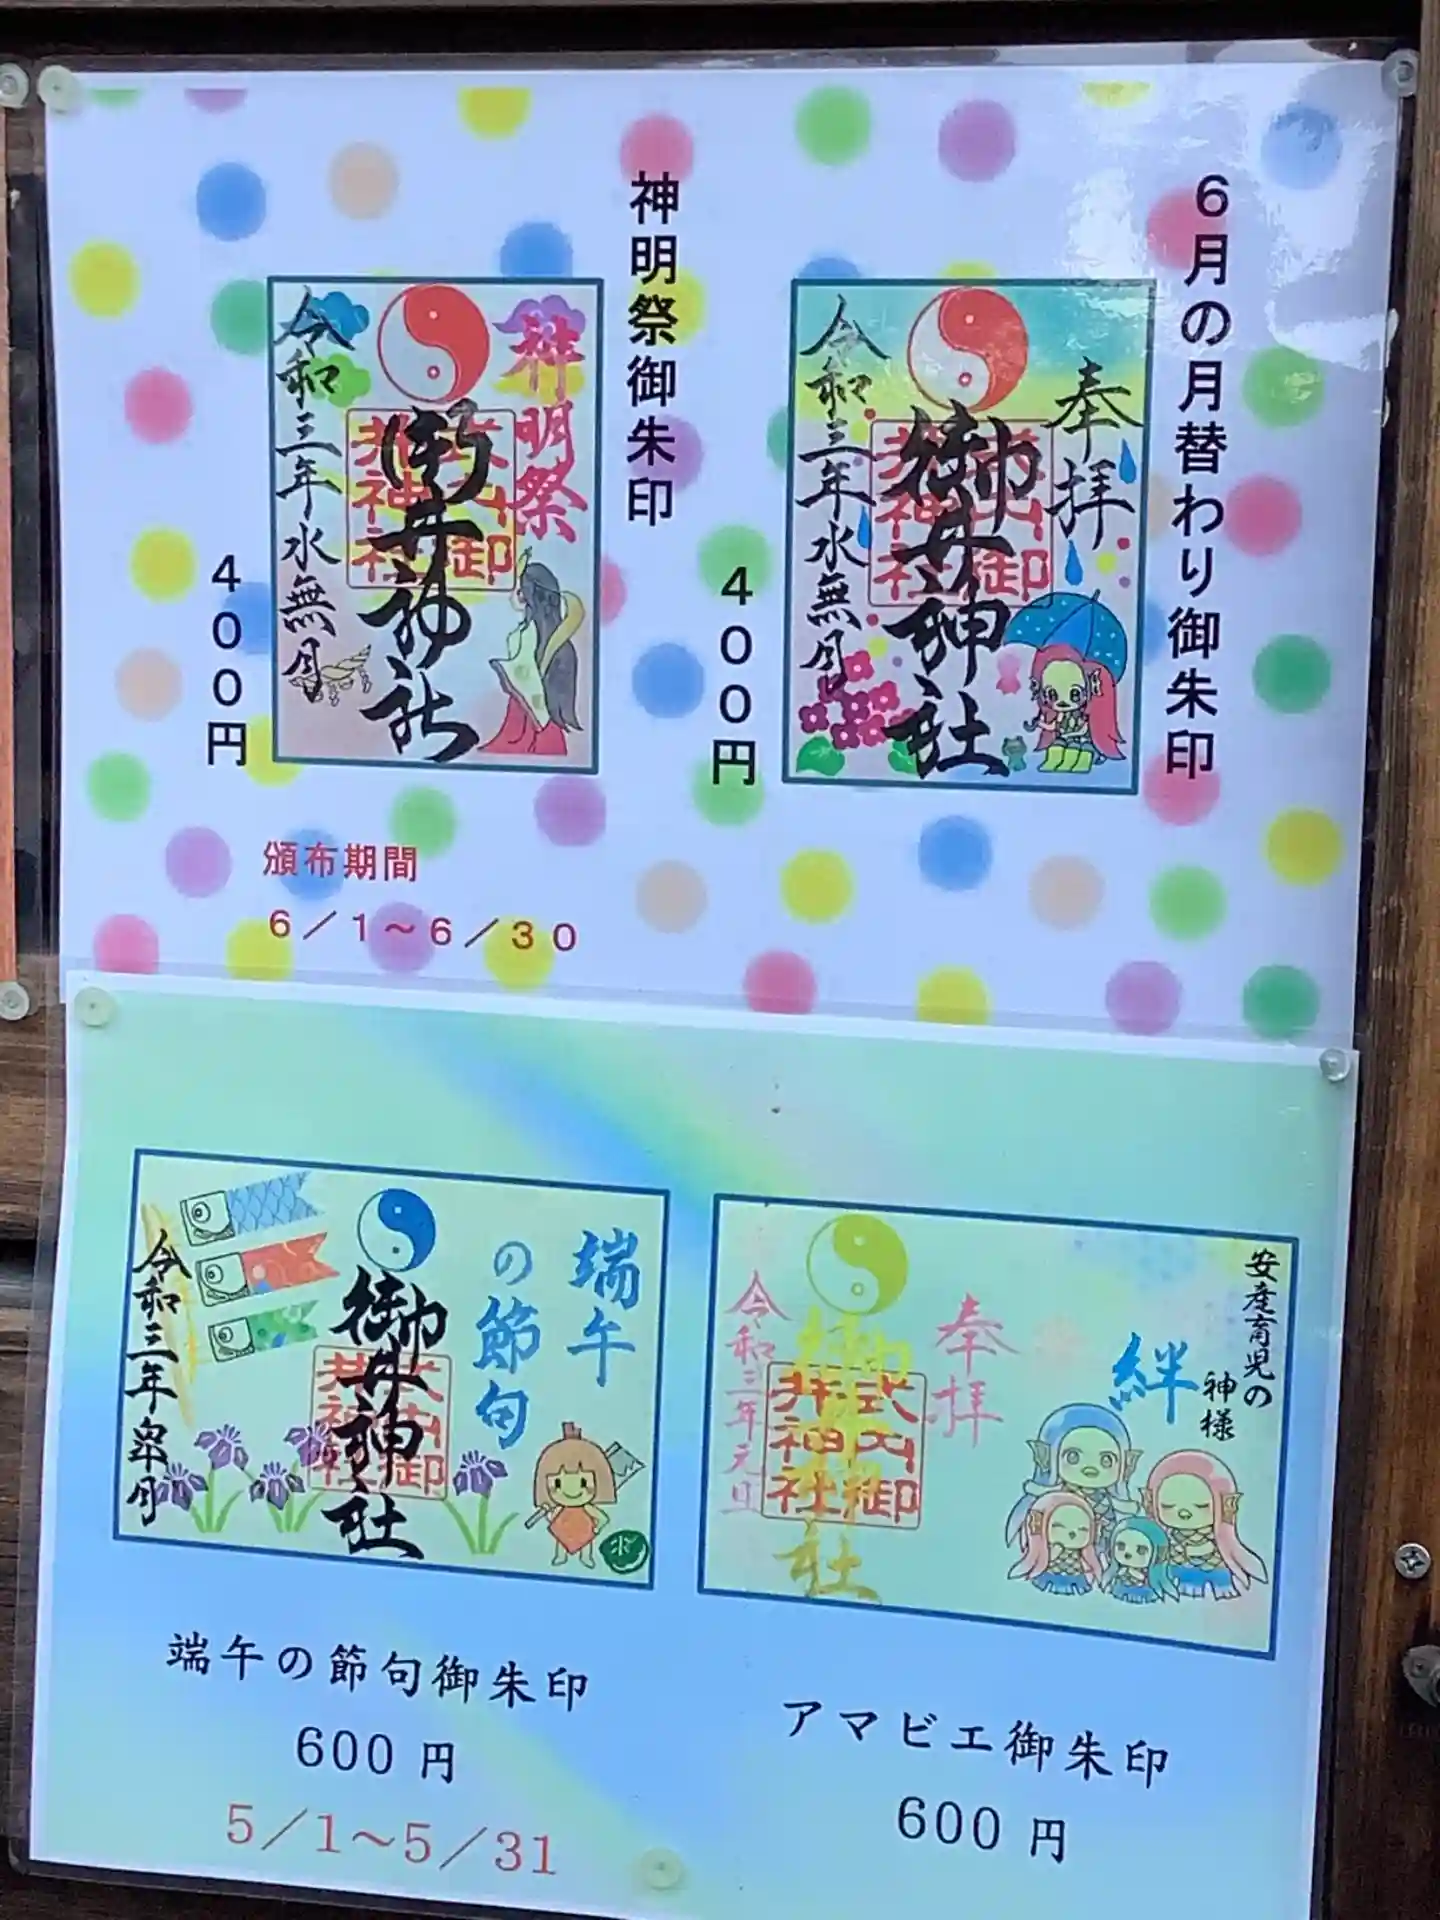 6月の月替わり御朱印
奉拝
御井神社
式内
御井神社
令和三年水無月
400円
神明祭御朱印
神明祭
御井神社
令和三年水無月
400円
頒布期間
6/1～6/30
端午
の節句
御井神社
式内御
井神社
令和三年皐月
端午の節句御朱印
600円
5/1～5/31
安産育児の
神様
絆
奉拝
御井神社
式内御
井神社
令和三年元旦
アマビエ御朱印
600円